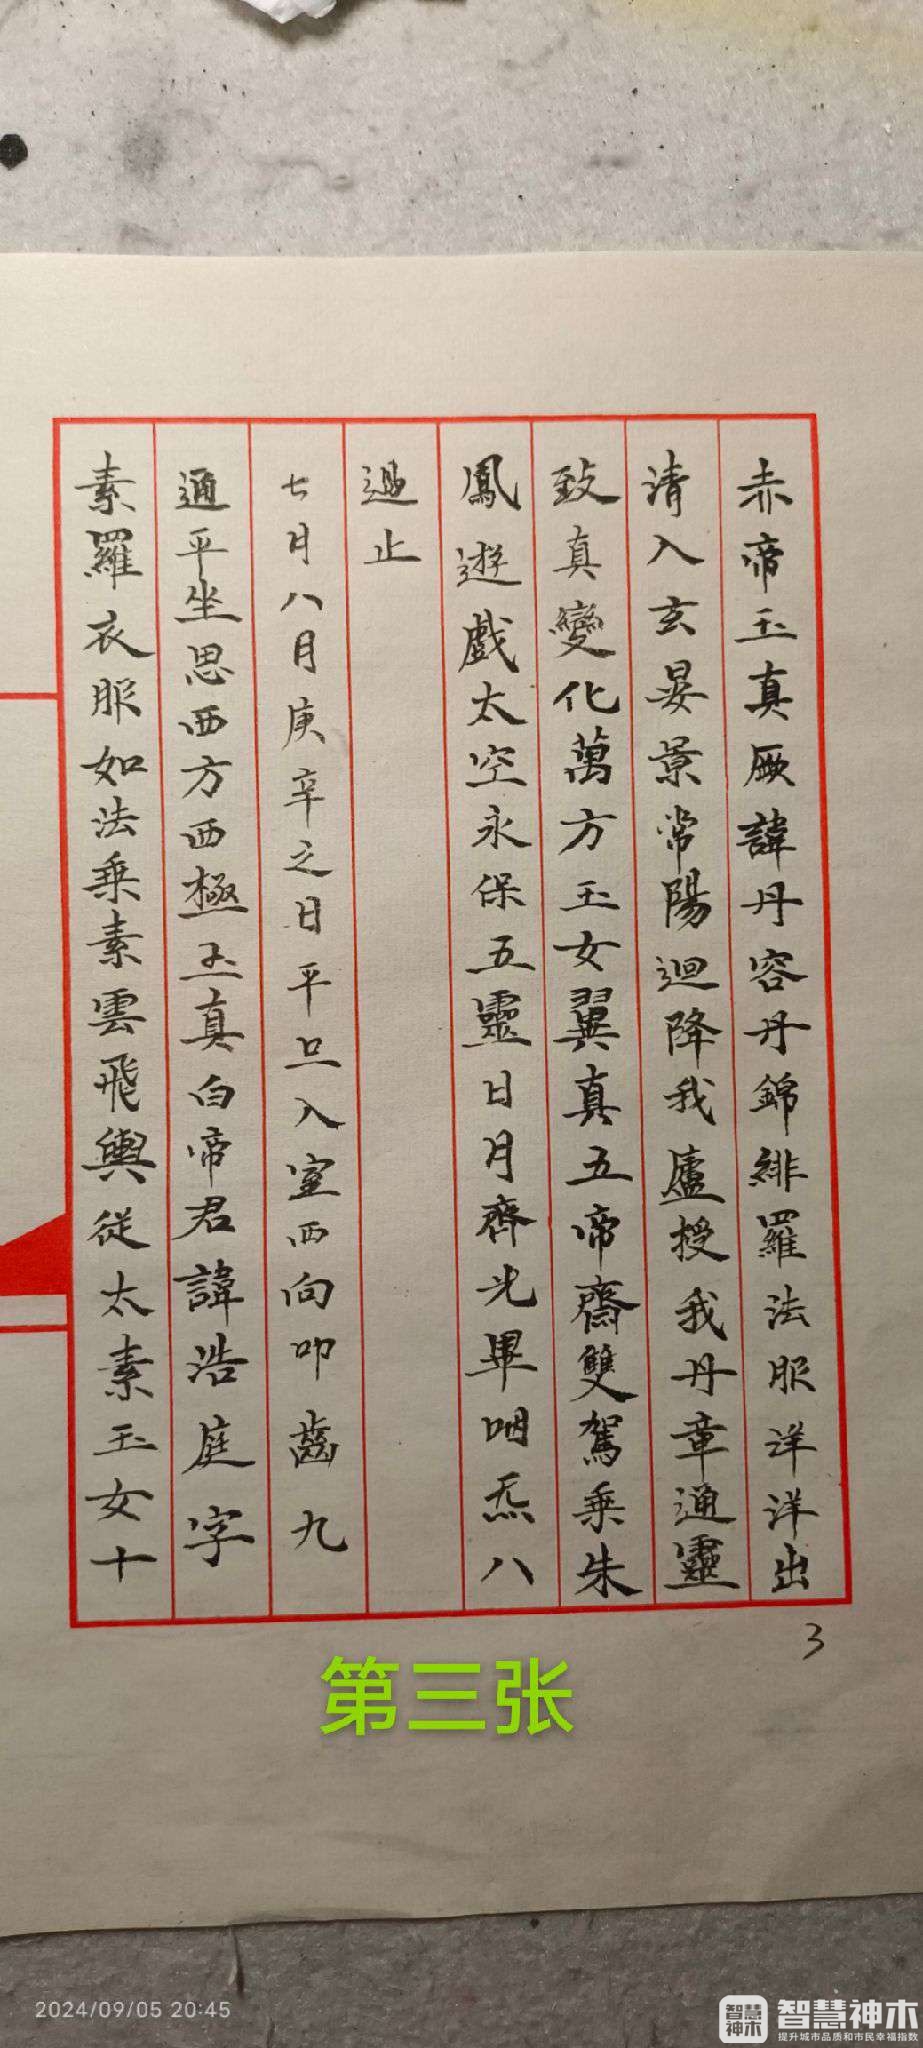 赤帝玉真厥諱丹容丹錦緋羅法服洋洋出
清入玄晏景常陽迴降我廬授我丹章通靈
致真變化萬方玉女翼真五帝齋雙駕乘朱
鳳遊戲太空永保五靈日月齊光畢咽炁八
過止
七月八月庚辛之日平旦入室西向叩齒九
通平坐思西方西極玉真白帝君諱浩庭字
素羅衣服如法乘素雲飛輿從太素玉女十
3
第三张
2024/09/05 20:45
智慧神木
智慧神木
提升城市品质和市民幸福指数